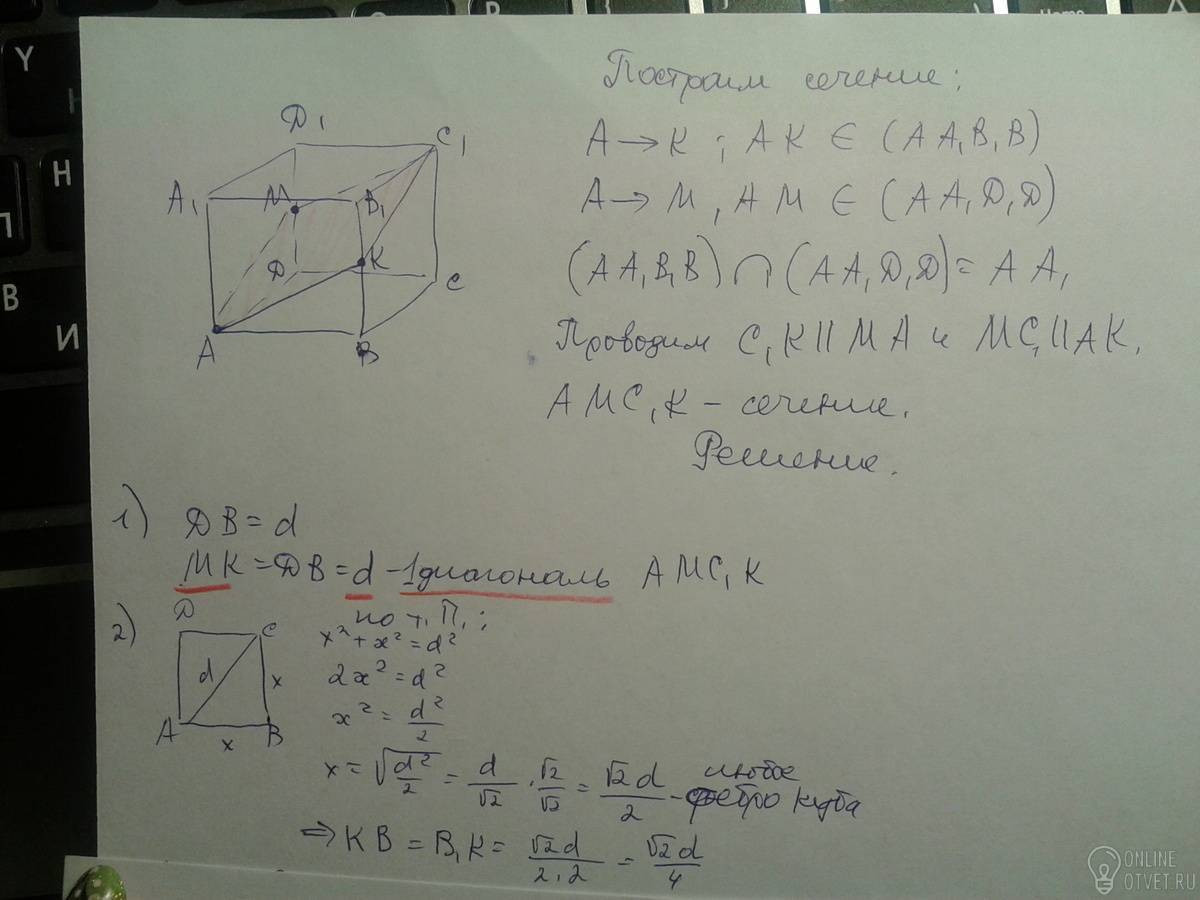 Построим сечение:
A → K ; AK ∈ (AA₁B₁B)
A → M, AM ∈ (AA₁Д₁Д)
(AA₁B₁B) ∩ (AA₁Д₁Д) = AA₁
Проводим C₁K || MA и MC₁ || AK.
AMC₁K – сечение.
Решение.
Д₁
C₁
A₁
M
B₁
Д
K
C
A
B
1) ДB = d
MK = ДB = d – 1 диагональ AMC₁K
2)
Д
C
d
x
A
x
B
по т. П.:
x² + x² = d²
2x² = d²
x² = d²/2
x = √(d²/2) = d/√2 · √2/√2 = √2d/2 – любое ребро куба
⇒ KB = B₁K = √2d/2·2 = √2d/4
ONLINE
OTVET.RU